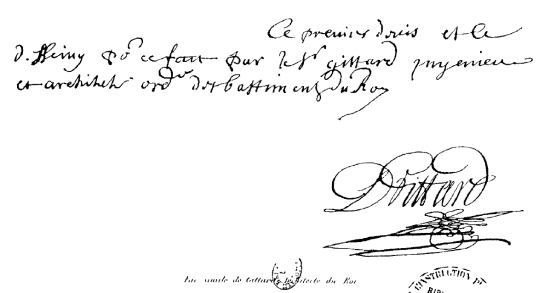 Ce premier devis et le
d. Heiny po.r ce faict par le Sr gittard Ingenieur
et architecte ordre des bastimentz du Roy
DGittard
Fac simile de Gittard Architecte du Roi
CONSTRUCTION ET